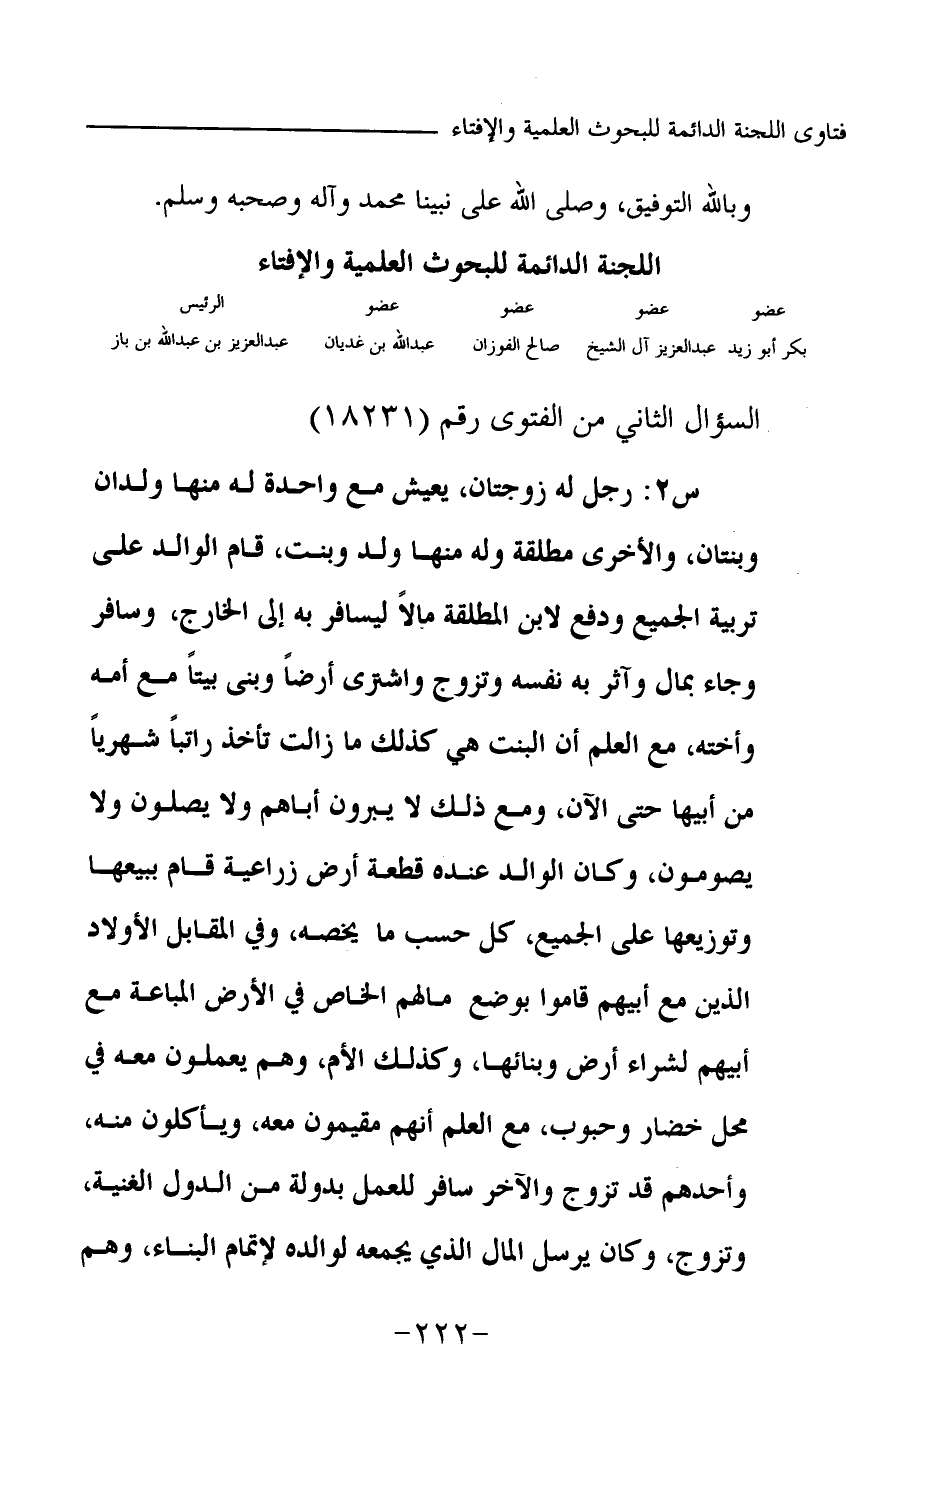 فتاوى اللجنة الدائمة للبحوث العلمية والإفتاء
وبالله التوفيق، وصلى الله على نبينا محمد وآله وصحبه وسلم.
اللجنة الدائمة للبحوث العلمية والإفتاء
عضو عضو عضو عضو الرئيس
بكر أبو زيد عبدالعزيز آل الشيخ صالح الفوزان عبدالله بن غديان عبدالعزيز بن عبدالله بن باز
السؤال الثاني من الفتوى رقم (١٨٢٣١)
س٢: رجل له زوجتان، يعيش مع واحدة له منها ولدان
وبنتان، والأخرى مطلقة وله منها ولد وبنت، قام الوالد على
تربية الجميع ودفع لابن المطلقة مالاً ليسافر به إلى الخارج، وسافر
وجاء بمال وآثر به نفسه وتزوج واشترى أرضاً وبنى بيتاً مع أمه
وأخته، مع العلم أن البنت هي كذلك ما زالت تأخذ راتباً شهرياً
من أبيها حتى الآن، ومع ذلك لا يبرون أباهم ولا يصلون ولا
يصومون، وكان الوالد عنده قطعة أرض زراعية قام ببيعها
وتوزيعها على الجميع، كل حسب ما يخصه، وفي المقابل الأولاد
الذين مع أبيهم قاموا بوضع مالهم الخاص في الأرض المباعة مع
أبيهم لشراء أرض وبنائها، وكذلك الأم، وهم يعملون معه في
محل خضار وحبوب، مع العلم أنهم مقيمون معه، ويأكلون منه،
وأحدهم قد تزوج والآخر سافر للعمل بدولة من الدول الغنية،
وتزوج، وكان يرسل المال الذي يجمعه لوالده لإتمام البناء، وهم
-٢٢٢-